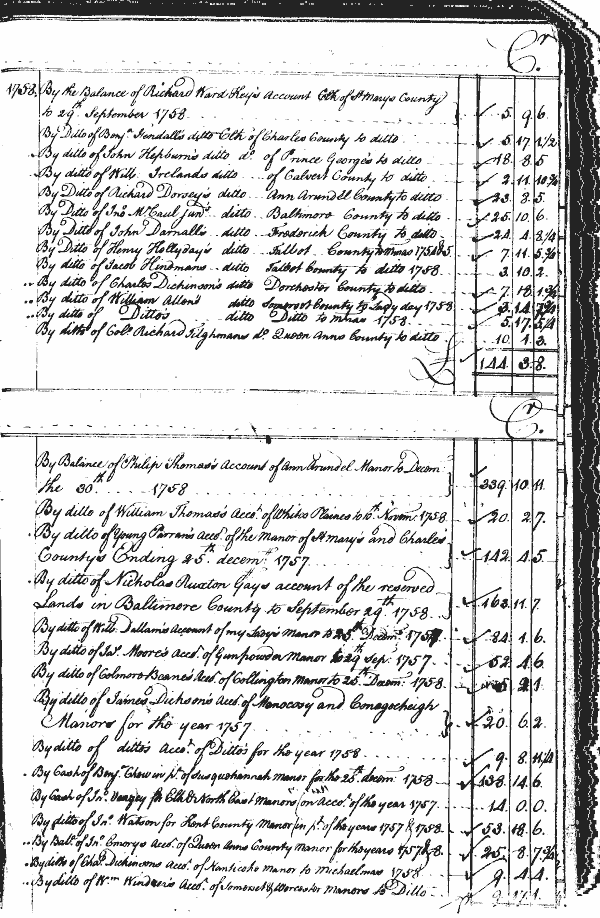 Cr.
1758. By the Balance of Richard Ward Key's Account Clk of St Marys County
to 29th September 1758 5. 9 6.
By Ditto of Benj. Fendall's ditto Clk of Charles County to ditto 5 17 1 1/2
By ditto of John Hepburn's ditto do of Prince George's to ditto 18. 8 5
By ditto of Will. Ireland's ditto of Calvert County to ditto 2. 11. 10 3/4
By Ditto of Richard Dorsey's ditto Ann Arundel County to ditto 23. 8. 5.
By Ditto of Jno. McCaul junr. ditto Baltimore County to ditto 25. 10. 6.
By Ditto of John Darnall's ditto Frederick County to ditto 24 4 8 1/4
By Ditto of Henry Hollyday's ditto Talbot County 7. 11. 5 3/4
By ditto of Jacob Hindmans ditto Talbot County to ditto 1758. 3. 10. 2.
By ditto of Charles Dickinson's ditto Dorchester County to ditto 7. 18.
By ditto of William Allen's ditto Somerset County to Lady day 1758 3. 14.
By ditto of Ditto's ditto Ditto to 1758. 5. 17.
By ditto of Colo. Richard Tilghmans do. Queen Anns County to ditto 10 1 3.
£ 144. 3. 8.
Cr.
By Balance of Philip Thomas's Account of Ann Arundel Manor to Decem
the 30th 1758 339. 10. 11.
By ditto of William Thomas's Acct. of White Plaines to Novem. 1758. 20. 2. 7.
By ditto of Young Parran's Acct. of the Manor of St Mary's and Charles
County's Ending 25th decemr. 1757 142. 4. 5.
By ditto of Nicholas Ruxton Gay's account of the reserved
Lands in Baltimore County to September 29th 1758 163. 11. 7.
By ditto of Will. Dallam's Account of my Lady's Manor to 25th Decem. 84 1. 6.
By ditto of Moore's Acct. of Gunpowder Manor to 29 Sep. 1757. 52. 4 6.
By ditto of Colmore Beanes Acct. of Collington Manor to 25th Decem. 1758. 5 2 1
By ditto of James Dickson's Acct. of Monocosy and Conogocheigh
Manors for the year 1757 20. 6 2.
By ditto of ditto's Acct. of Ditto's for the year 1758 9. 8. 11 1/4
By Cash of Benj. Chew in pt. of Susquehannah Manor for the 25th decem 1758 138. 14. 6.
By Cash of Jno. Veazey for Elk & North East Manors on Acct. of the year 1757. 14. 0. 0.
By ditto of Jno. Watson for Kent County Manor in pt. of the years 1757 & 1758 53. 18. 6.
By Balc. of Jno. Emorys Acct. of Queen Anns County Manor for the years 1757 & 8. 25. 8. 7 3/4
By ditto of Chas. Dickinsons Acct. of Nanticoke Manor to Michaelmas 1758 9. 4 4.
By ditto of Wm Acct. of Somerset & Worcester Manors to Ditto 9. 17. 1.